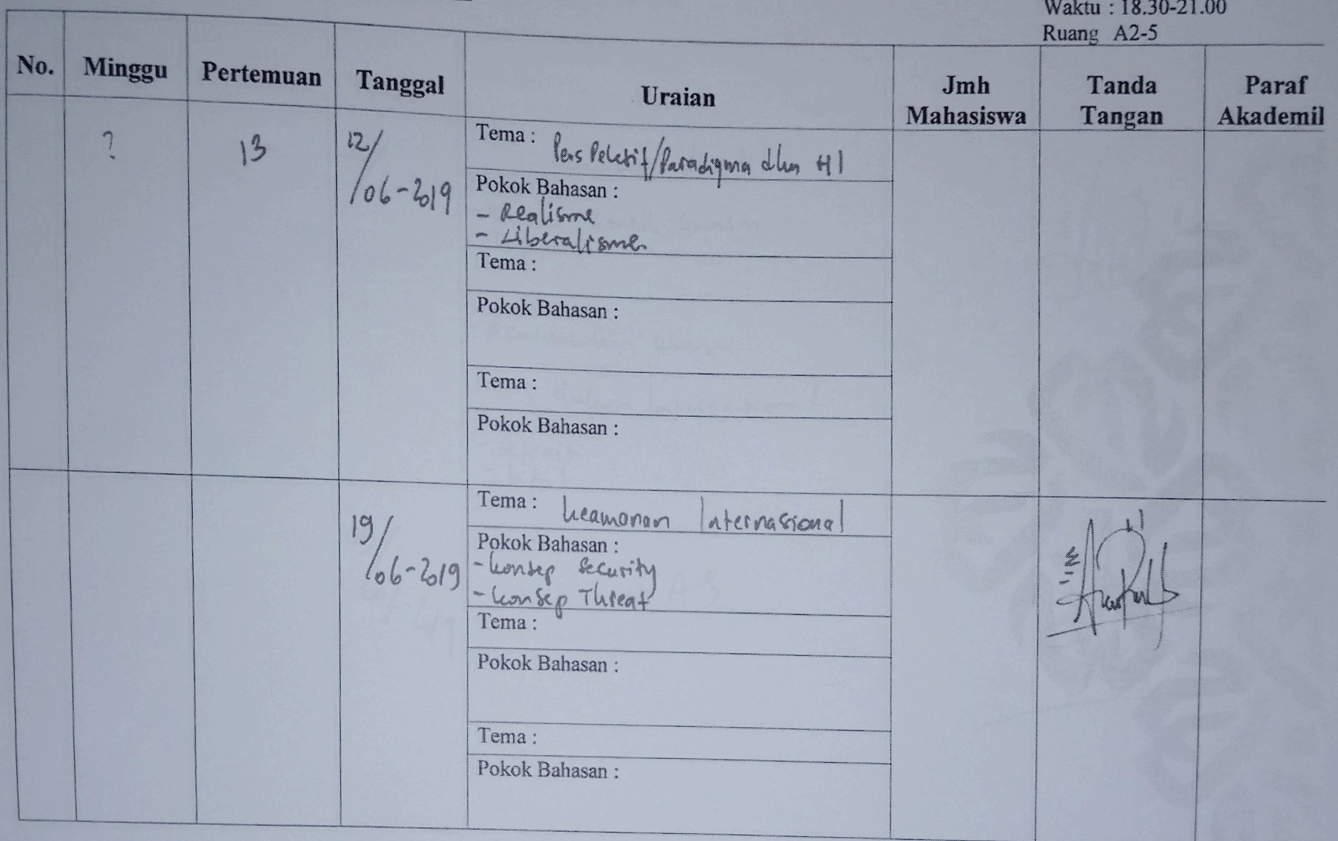 Waktu : 18.30-21.00
Ruang A2-5
No. Minggu Pertemuan Tanggal Uraian Jmh Mahasiswa Tanda Tangan Paraf Akademil
? 13 12/06-2019
Tema : Perspektif/Paradigma dlm HI
Pokok Bahasan :
- Realisme
- Liberalisme
Tema :
Pokok Bahasan :
Tema :
Pokok Bahasan :
19/06-2019
Tema : Keamanan Internasional
Pokok Bahasan :
- Konsep Security
- Konsep Threat
Tema :
Pokok Bahasan :
Tema :
Pokok Bahasan :